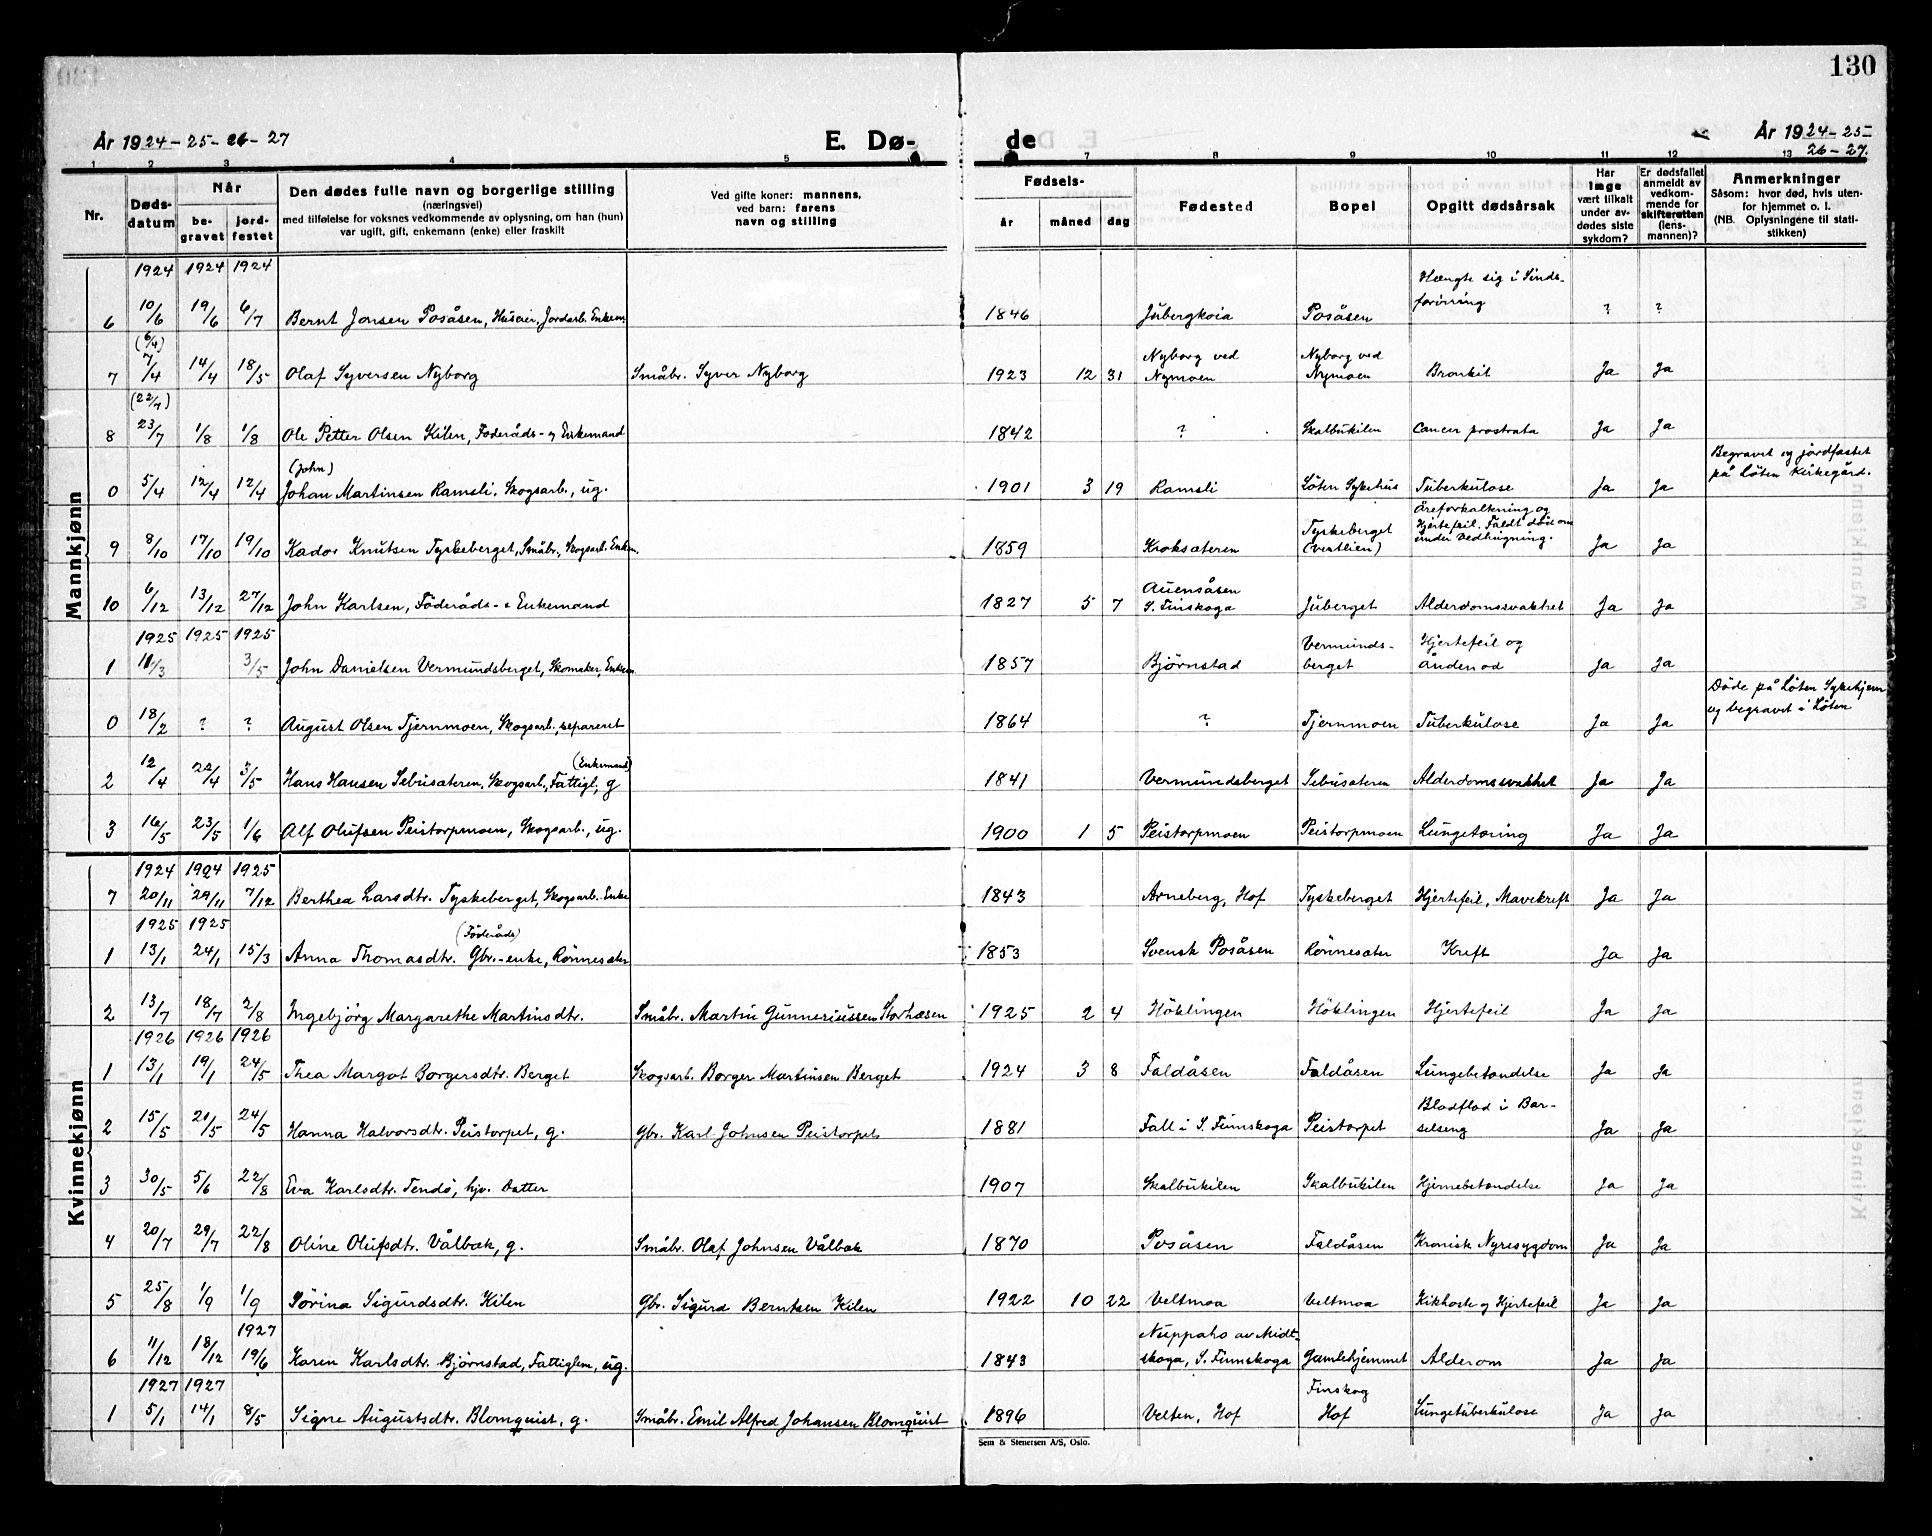 130
År 1924-25-26-27 E. Dø- de År 1924-25-
26-27.
1 2 3 4 5 7 8 9 10 11 12 13
Nr. Dødsdatum Når begravet jordfestet Den dødes fulle navn og borgerlige stilling (næringsvei) med tilføielse for voksnes vedkommende av oplysning, om han (hun) var ugift, gift, enkemann (enke) eller fraskilt Ved gifte koner: mannens, ved barn: farens navn og stilling Fødsels- år måned dag Fødested Bopel Opgitt dødsårsak Har læge vært tilkalt under avdødes siste sykdom? Er dødsfallet anmeldt av vedkommende for skifteretten (lensmannen)? Anmerkninger Såsom: hvor død, hvis utenfor hjemmet o. l. (NB. Oplysningene til statistikken)
Mannkjønn
1924 1924 1924
6 10/6 19/6 6/7 Bernt Jonsen Posåsen, Huseier, Jordarb. Enkem. 1846 Jubergkoia Posåsen Hængte sig i Sindsforvirring ? ?
7 (6/4) 7/4 14/4 18/5 Olaf Syversen Nyborg Småbr. Syver Nyborg 1923 12 31 Nyborg ved Nymoen Nyborg ved Nymoen Bronkit Ja Ja
8 (22/7) 23/7 1/8 1/8 Ole Petter Olsen Kilen, Föderåds- og Enkemand 1842 ? Skalbukilen Cancer prostrata Ja Ja
0 5/4 12/4 12/4 (John) Johan Martinsen Ramsli, Skogsarb., ug. 1901 3 19 Ramsli Löten Sykehus Tuberkulose Ja Ja Begravet og jordfæstet på Löten Kirkegård.
9 8/10 17/10 19/10 Kador Knutsen Tyskeberget, Småbr., Skogsarb. Enkem. 1859 Kroksæteren Tyskeberget (Vestlien) Åreforkalkning og Hjertefeil. Faldt död om under Vedhugning. Ja Ja
10 6/12 13/12 27/12 John Karlsen, Föderåds- & Enkemand 1827 5 7 Auensåsen S. Finskoga Juberget Alderdomssvakhet Ja Ja
1925 1925 1925
1 11/3 3/5 John Danielsen Vermundsberget, Skomaker, Enkem. 1857 Bjørnstad Vermundsberget Hjertefeil og Åndenöd Ja Ja
0 18/2 ? ? August Olsen Tjernmoen, Skogsarb., separeret 1864 ? Tjernmoen Tuberkulose Ja Ja Döde på Löten Sykehjem og begravet i Löten
2 12/4 22/4 3/5 Hans Hansen Sebusæteren, Skogsarb., Fattigl., g (Enkemand) 1841 Vermundsberget Sebusæteren Alderdomssvakhet Ja Ja
3 16/5 23/5 1/6 Alf Olufsen Peistorpmoen, Skogsarb., ug. 1900 1 5 Peistorpmoen Peistorpmoen Lungetæring Ja Ja
Kvinnekjønn
1924 1924 1925
7 20/11 29/11 7/12 Berthea Larsdtr. Tyskeberget, Skogsarb. Enke 1843 Arneberg, Hof Tyskeberget Hjertefeil, Mavekreft Ja Ja
1925 1925
1 13/1 24/1 15/3 Anna Thomasdtr. (Föderåds) Gbr.-enke, Rönnesæter 1853 Svensk Posåsen Rönnesæter Kreft Ja Ja
2 13/7 18/7 2/8 Ingebjörg Margarethe Martinsdtr. Småbr. Martin Gunneriussen Storhæsen 1925 2 4 Höklingen Höklingen Hjertefeil Ja Ja
1926 1926 1926
1 13/1 19/1 24/5 Thea Margot Borgersdtr. Berget Skogsarb. Borger Martinsen Berget 1924 3 8 Faldåsen Faldåsen Lungebetændelse Ja Ja
2 15/5 21/5 24/5 Hanna Halvorsdtr. Peistorpet, g. Gbr. Karl Johnsen Peistorpet 1881 Fall i S. Finnskoga Peistorpet Blodflod i Barselseng Ja Ja
3 30/5 5/6 22/8 Eva Karlsdtr. Tendö, hjv. Datter 1907 Skalbukilen Skalbukilen Hjernebetændelse Ja Ja
4 20/7 29/7 22/8 Oline Olufsdtr. Vålbæk, g. Småbr. Olaf Johnsen Vålbæk 1870 Posåsen Faldåsen Kronisk Nyresygdom Ja Ja
5 25/8 1/9 1/9 Sörina Sigurdsdtr. Kilen Gbr. Sigurd Berntsen Kilen 1922 10 22 Veltmoa Veltmoa Kikhoste og Hjertefeil Ja Ja
1927
6 11/12 18/12 19/6 Karen Karlsdtr. Bjørnstad, Fattiglem, ug. 1843 Nuppaho av Midtskoga, S. Finnskoga Gamlehjemmet Alderdom Ja Ja
1927 1927
1 5/1 14/1 8/5 Signe Augustsdtr. Blomquist, g. Småbr. Emil Alfred Johansen Blomquist 1896 Velten, Hof Finskog Hof Lungetuberkulose Ja Ja
Sem & Stenersen A/S, Oslo.